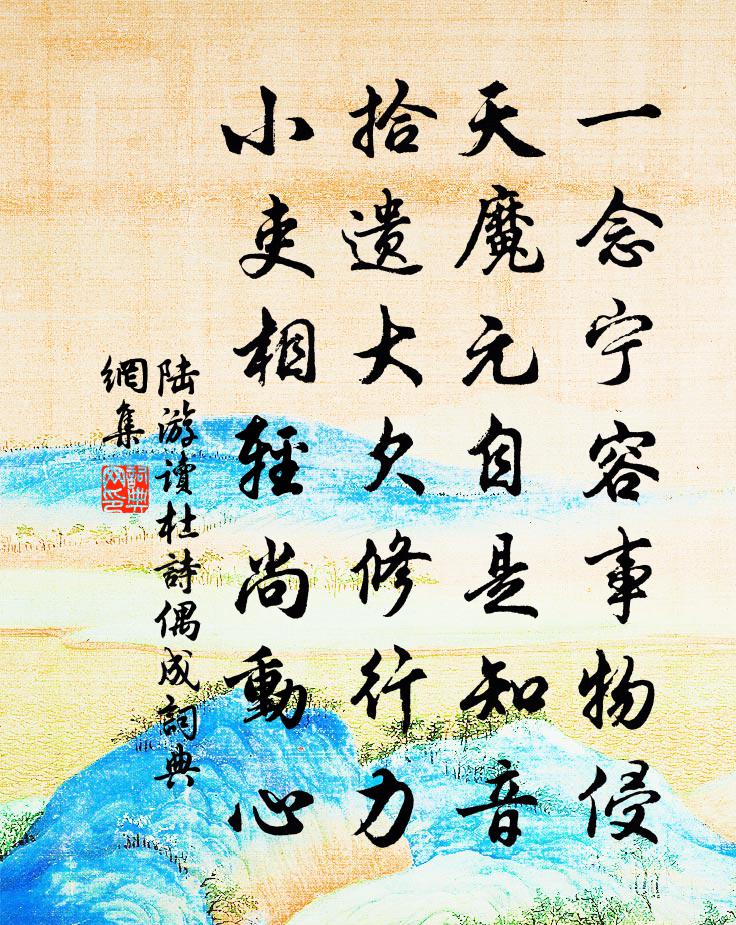 一念宁容事物侵
天魔元自是知音
拾遗大欠修行力
小吏相輕尚動心
陆游讀杜詩偶成詞典
網集